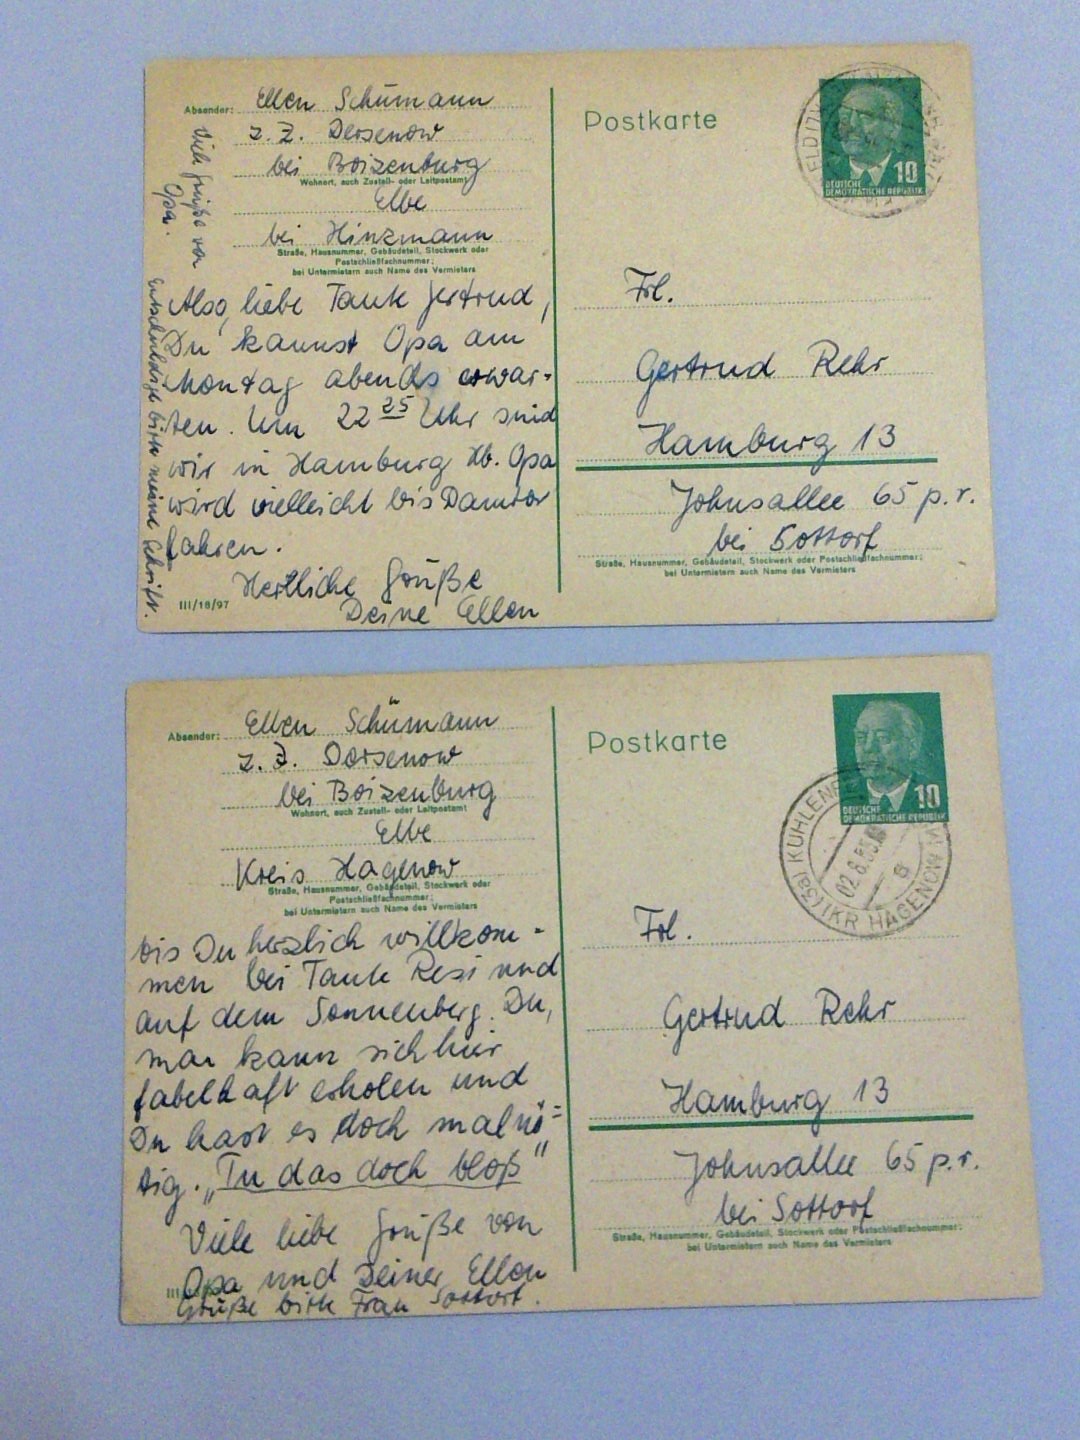 Absender: Ellen Schümann
z. Z. Dersenow
bei Boizenburg
Wohnort, auch Zustell- oder Leitpostamt
Elbe
bei Hinzmann
Straße, Hausnummer, Gebäudeteil, Stockwerk oder
Postschließfachnummer;
bei Untermietern auch Name des Vermieters
Viele Grüße von
Opa.
Also, liebe Tante Gertrud,
Du kannst Opa am
Montag abends erwar-
ten. Um 22 25 Uhr sind
wir in Hamburg Hb. Opa
wird vielleicht bis Damtor
fahren.
Hertliche Grüße
Deine Ellen
Entschuldige bitte meine Schrift.
III/18/97
Postkarte
10
DEUTSCHE
DEMOKRATISCHE REPUBLIK
Frl.
Gertrud Rehr
Hamburg 13
Johnsallee 65 p.r.
bei Sottorf
Straße, Hausnummer, Gebäudeteil, Stockwerk oder Postschließfachnummer;
bei Untermietern auch Name des Vermieters
Absender: Ellen Schümann
z. Z. Dersenow
bei Boizenburg
Wohnort, auch Zustell- oder Leitpostamt
Elbe
Kreis Hagenow
Straße, Hausnummer, Gebäudeteil, Stockwerk oder
Postschließfachnummer;
bei Untermietern auch Name des Vermieters
bis Du herzlich willkom-
men bei Tante Resi und
auf dem Sonnenberg. Du,
man kann sich hier
fabelhaft erholen und
Du hast es doch mal nö=
tig. „Tu das doch bloß"
Viele liebe Grüße von
Opa und Deiner Ellen
Grüße bitte Frau Sottorf.
Postkarte
10
DEUTSCHE
DEMOKRATISCHE REPUBLIK
(3a) KUHLENFELD
(KR HAGENOW
a
Frl.
Gertrud Rehr
Hamburg 13
Johnsallee 65 p.r.
bei Sottorf
Straße, Hausnummer, Gebäudeteil, Stockwerk oder Postschließfachnummer;
bei Untermietern auch Name des Vermieters